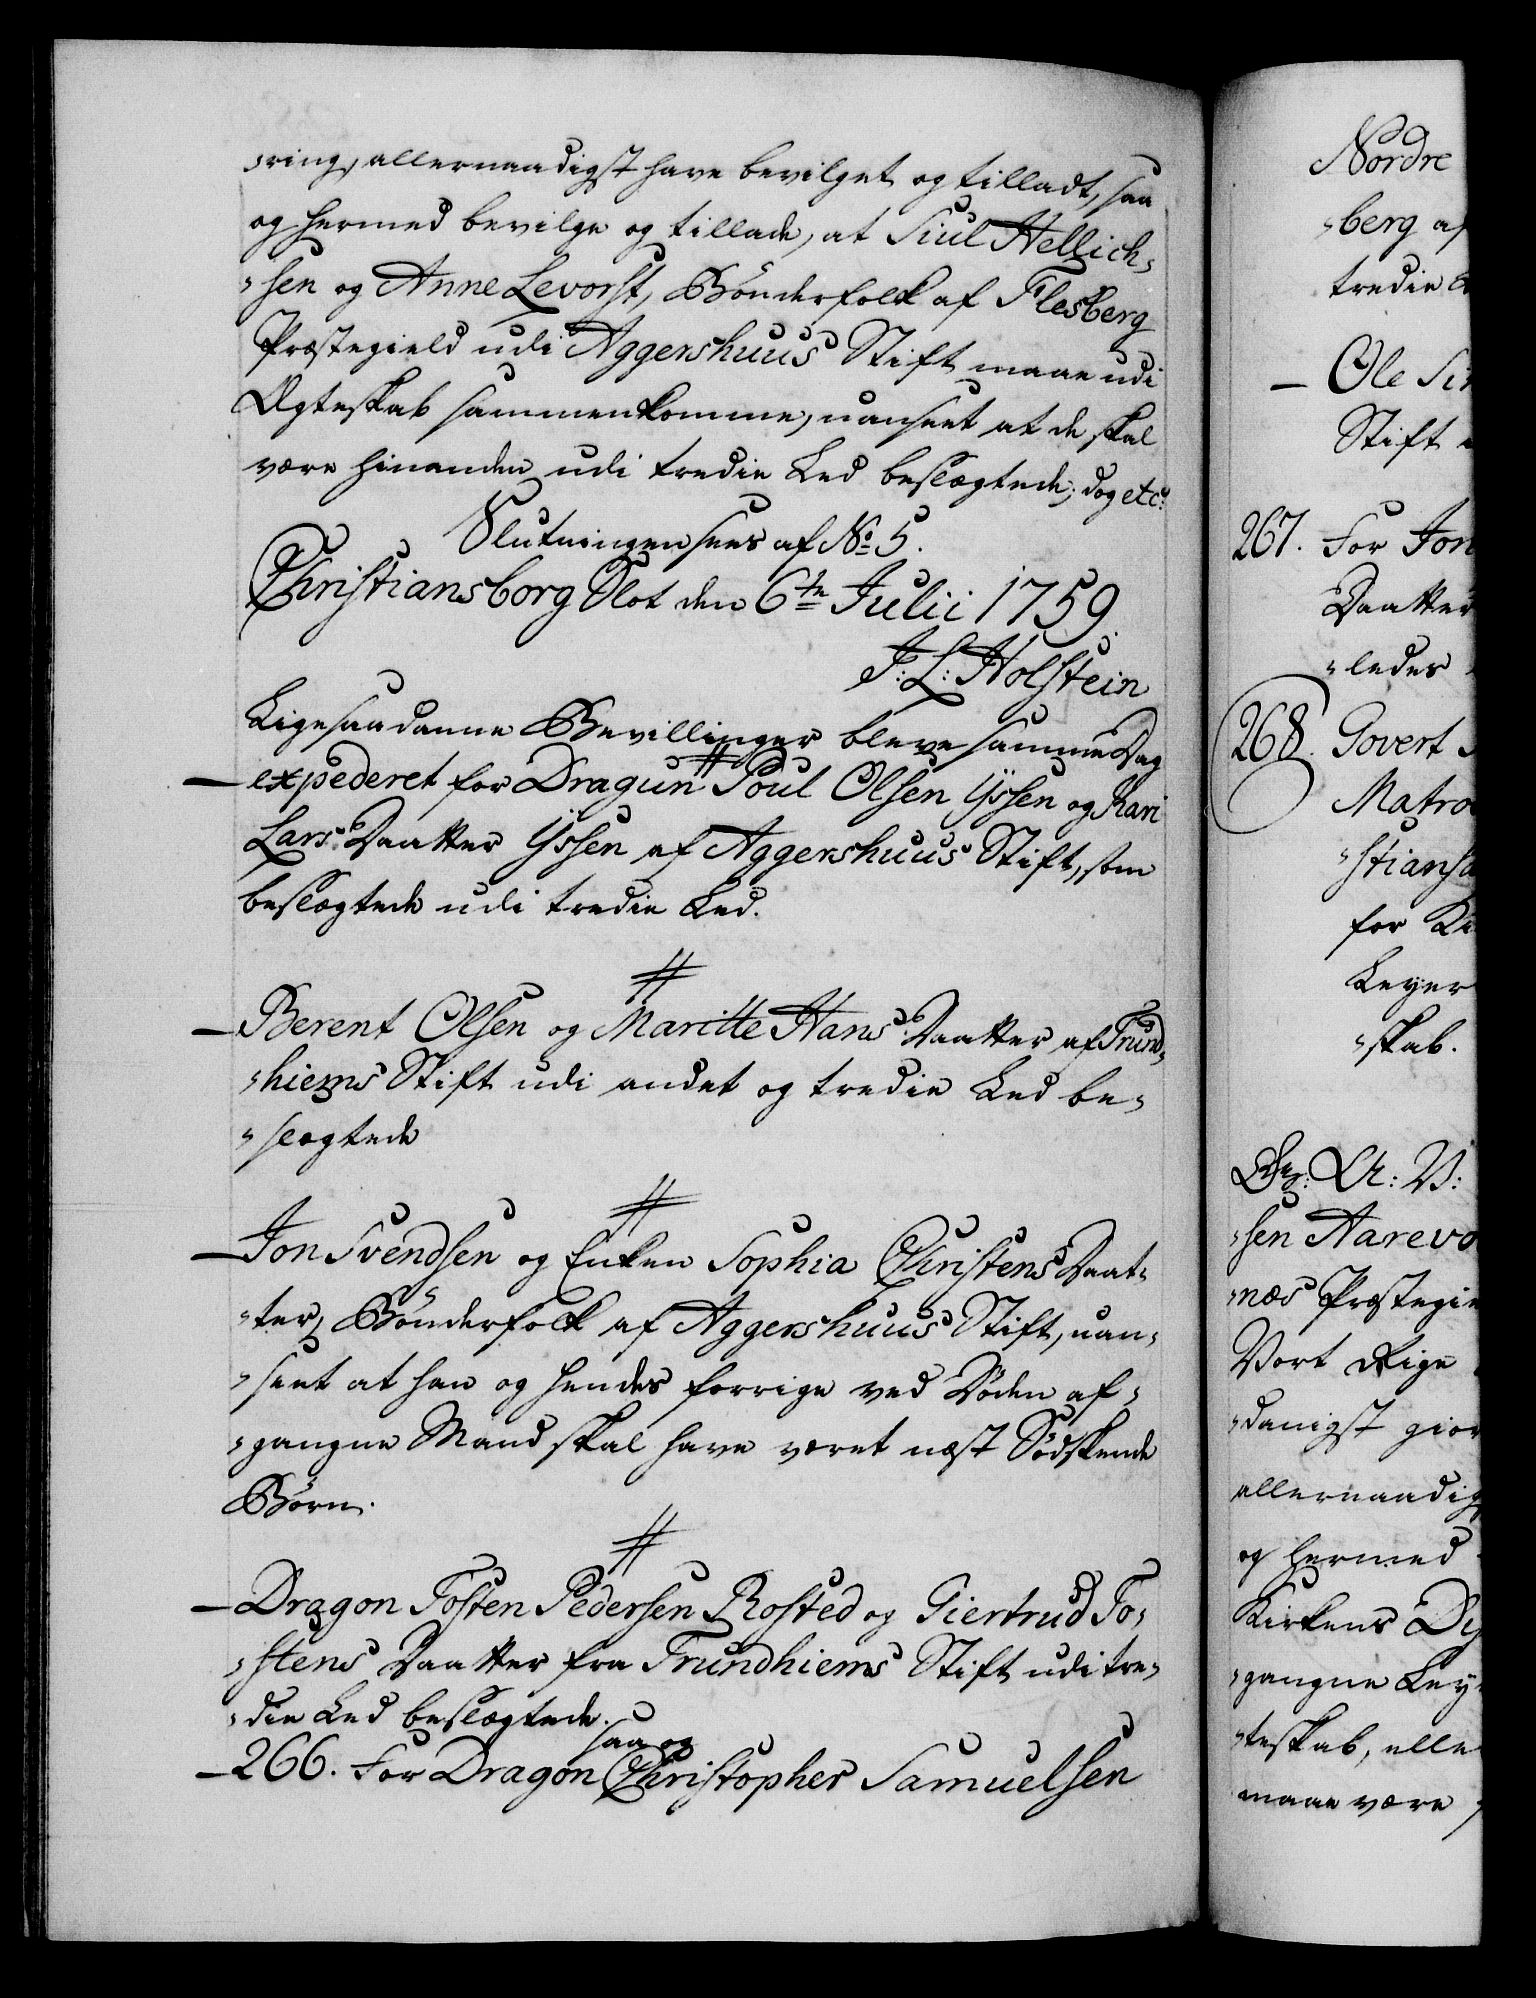 -ring, allernaadigst have bevilget og tilladt, saa
og hermed bevilge og tillade, at Siul Hellich-
-sen og Anne Levorst, Bønderfolk af Flesberg
Præstegield udi Aggershuus Stift maae udi
Ægteskab sammenkomme, uanseet at de skal
være hinanden udi tredie Led beslægtede; dog etc:
Slutningen sees af No 5.
Christiansborg Slot den 6te Julii 1759.
J: L: Holstein
Ligesaadanne Bevillinger bleve samme Dag
- expederet for Dragun Poul Olsen Yssen og Kari
Lars Daatter Yssen af Aggershuus Stift, som
beslægtede udi tredie Led.
//
- Berent Olsen og Maritte Hans Daatter af Trund-
-hiems Stift udi andet og tredie Led be-
-slægtede
//
- Jon Svendsen og Enken Sophia Christens Daat-
-ter, Bønderfolk af Aggershuus Stift, uan-
-seet at han og hendes forrige ved Døden af-
-gangne Mand skal have været næst Sødskende
Børn.
//
- Dragon Tosten Pedersen Rosted og Giertrud To-
-stens Daatter fra Trundhiems Stift udi tre-
-die Led beslægtede.
saa og
- 266. For Dragon Christopher Samuelsen
Nordre
-berg af
tredie
- Ole
Stift
267. For Jon
Daatter
-ledes
268. Govert
Matro
-stiansa
for
Leyer
-skab.
Gr: A: V:
-sen Aarevo
-næs Præstegie
Vort Rige
-danigst gior
allernaadig
og hermed
Kirkens
-gangne Ley
-teskab, elle
maae være